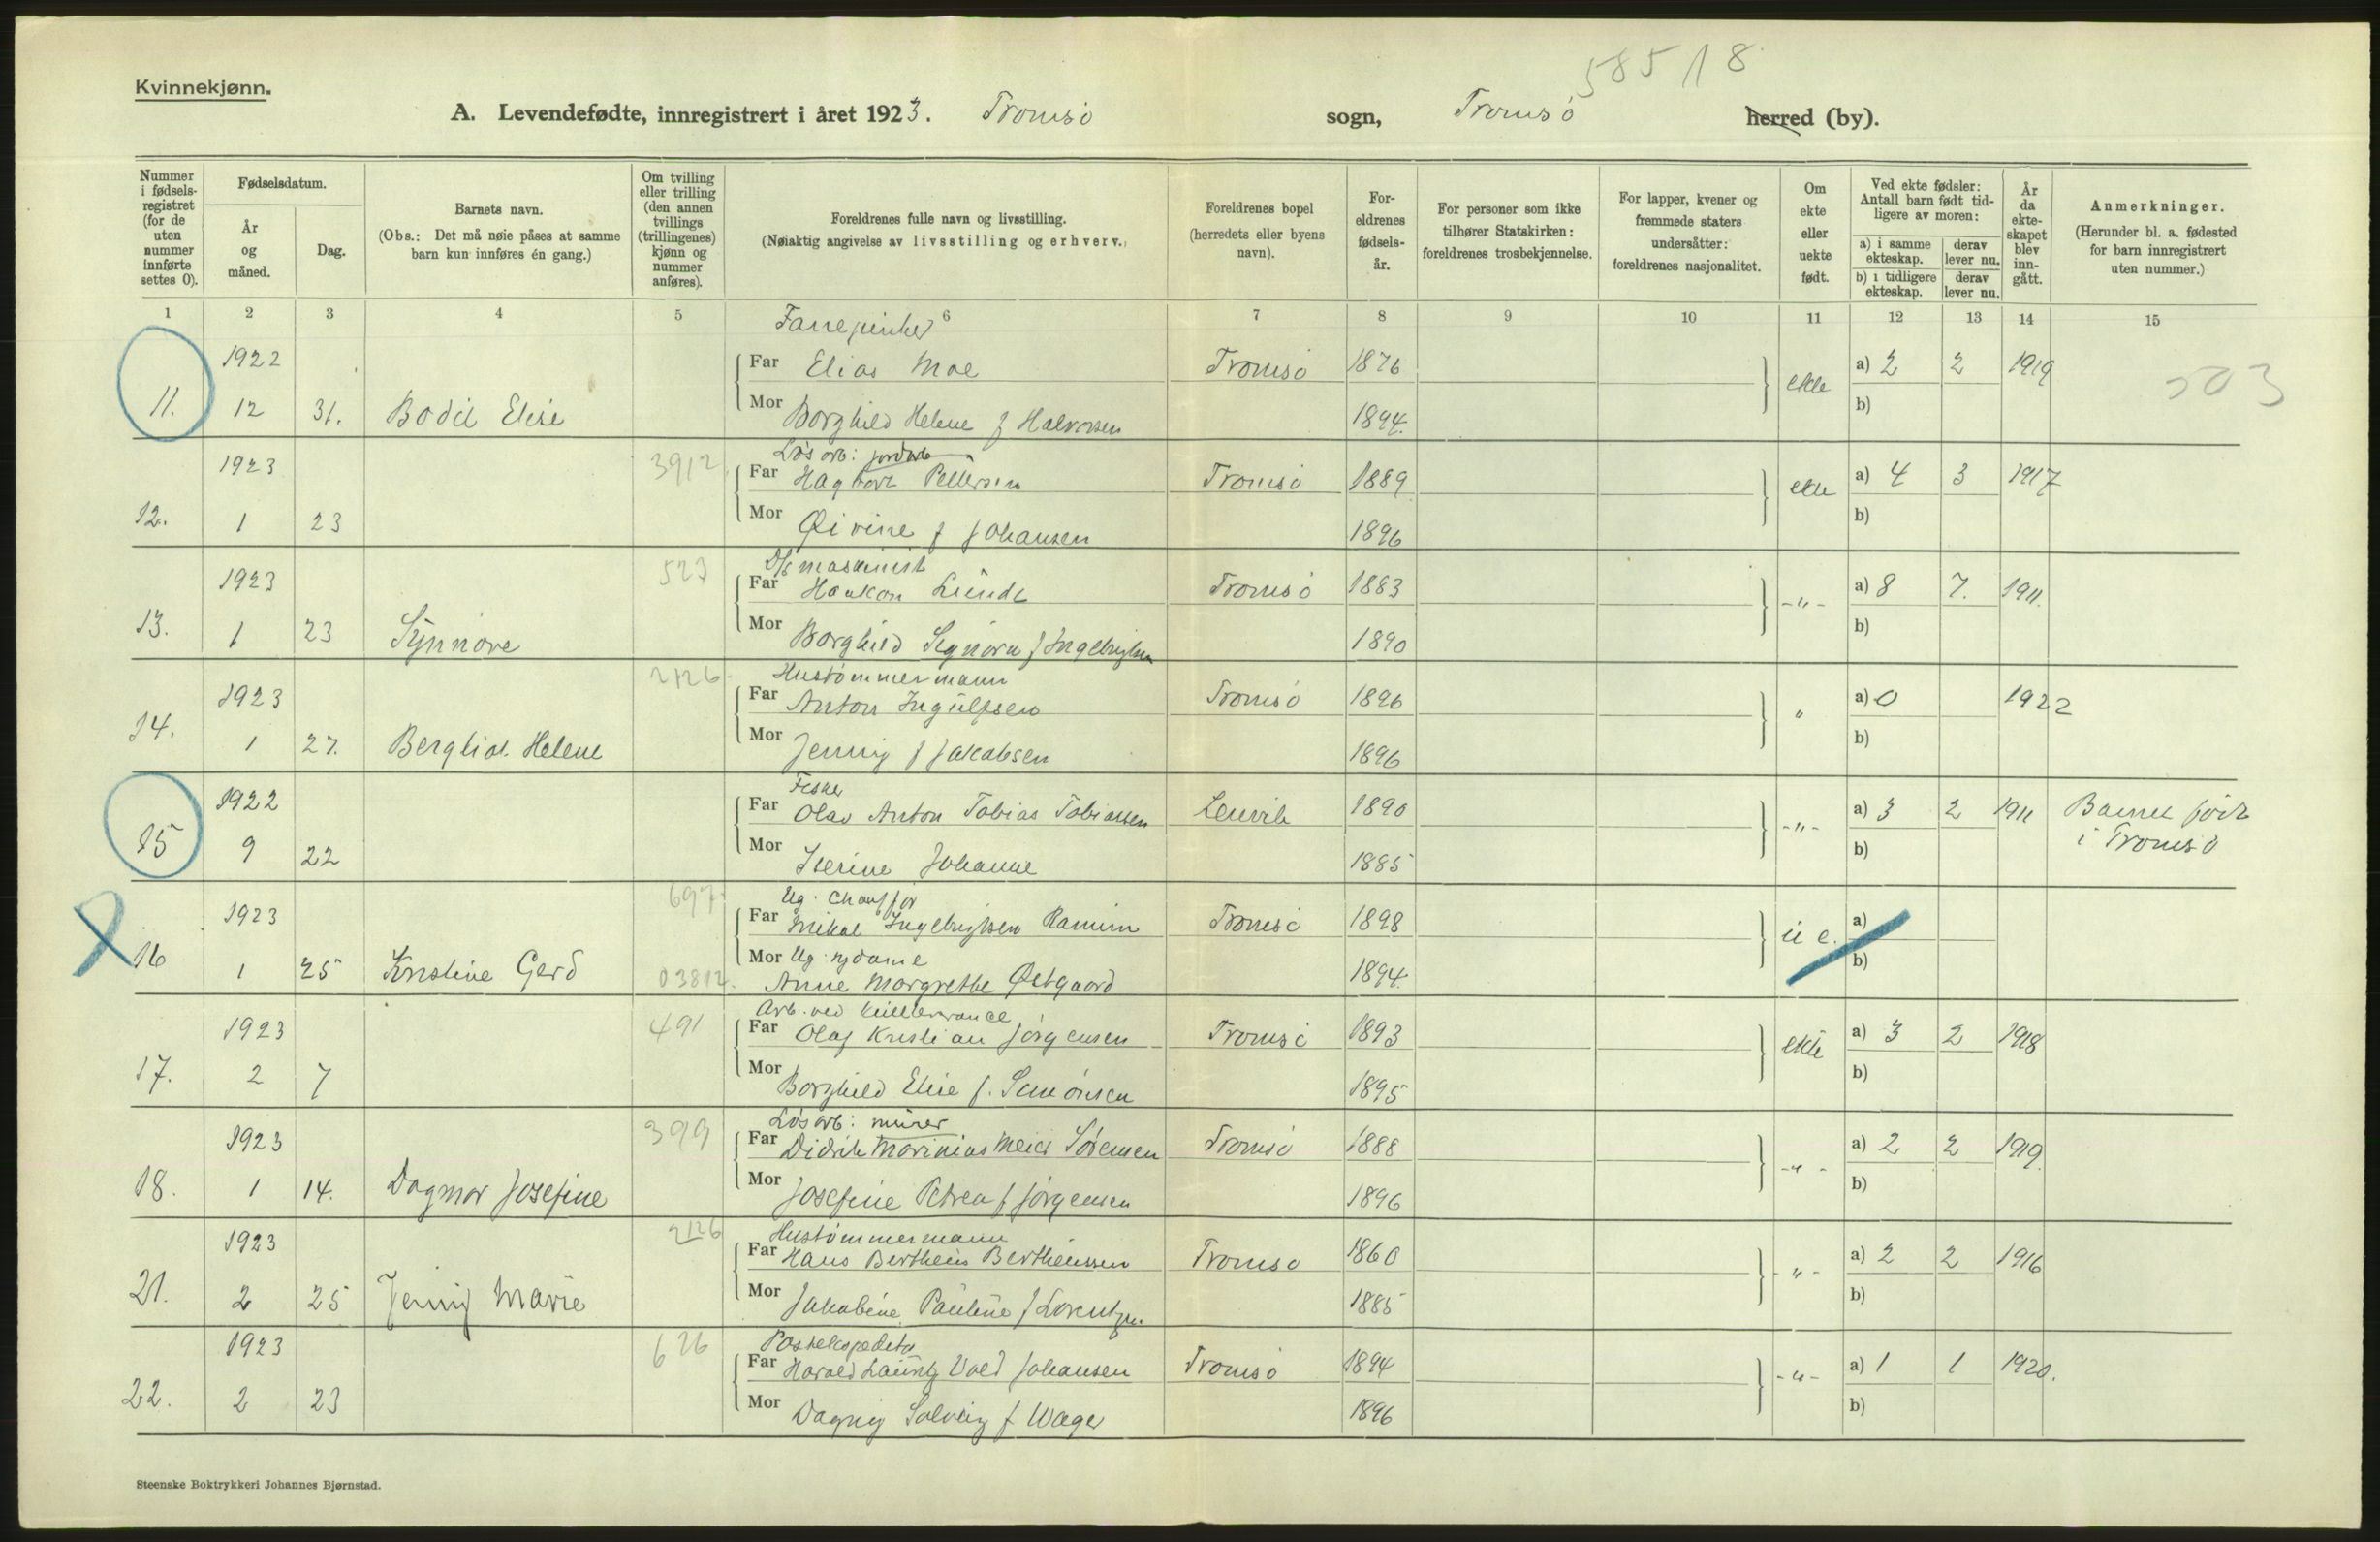 585 / 8
Kvinnekjønn.
A. Levendefødte, innregistrert i året 1923. Tromsö sogn, Tromsö herred (by).
Nummer i fødsels-registret (for de uten nummer innførte settes 0).
Fødselsdatum.
År og måned.
Dag.
Barnets navn.
(Obs.: Det må nøie påses at samme barn kun innføres én gang.)
Om tvilling eller trilling (den annen tvillings (trillingenes) kjønn og nummer anføres).
Foreldrenes fulle navn og livsstilling.
(Nøiaktig angivelse av livsstilling og erhverv.)
Foreldrenes bopel (herredets eller byens navn).
For-eldrenes fødsels-år.
For personer som ikke tilhører Statskirken: foreldrenes trosbekjennelse.
For lapper, kvener og fremmede staters undersåtter: foreldrenes nasjonalitet.
Om ekte eller uekte født.
Ved ekte fødsler: Antall barn født tid-ligere av moren:
a) i samme ekteskap. derav lever nu.
b) i tidligere ekteskap. derav lever nu.
År da ekte-skapet blev inn-gått.
Anmerkninger.
(Herunder bl. a. fødested for barn innregistrert uten nummer.)
1 2 3 4 5 6 7 8 9 10 11 12 13 14 15
1922 Far Elias Moe Tromsö 1876 ekte a) 2 2 1919 503
11. 12 31. Bodil Elise Mor Borghild Helene f Halvorsen 1894. b)
Lös arb: jordarb
1923 3912 Far Hagbart Pettersen Tromsö 1889 ekte a) 4 3 1917
12. 1 23 Mor f Johansen 1896 b)
D/s maskinist
1923 523 Far Haakon Lund Tromsö 1883 -"- a) 8 7. 1911.
13. 1 23 Synnöve Mor Borghild Signora f Ingebrigtsen 1890 b)
Hustömmermann
1923 2126 Far Anton Ingulfsen Tromsö 1896 " a) 0 1922
14. 1 27. Bergliot Helene Mor Jenny f Jakobsen 1896 b)
Fisker
1922 Far Olav Anton Tobias Tobiassen Lenvik 1890 -"- a) 3 2 1911 Barnet född
15 9 22 Mor Iverine Johanne 1885 b) i Tromsö
Ug. Chaufför
1923 697 Far Mikal Ingebrigtsen Tromsö 1898 u e. a)
16 1 25 Kristine Gerd 03812. Mor Ug. sydame
Anne Margrethe Østgaard 1894. b)
Arb. ved
1923 491 Far Olaf Kristian Jörgensen Tromsö 1893 ekte a) 3 2 1918
17. 2 7 Mor Borghild Elise f. Simönsen 1895 b)
Lös arb: murer
1923 399 Far Didrik Marinius Meier Sörensen Tromsö 1888 -"- a) 2 2 1919.
18. 1 14. Dagmar Josefine Mor Josefine Petrea f Jörgensen 1896 b)
Hustömmermann
1923 2126 Far Hans Bertheus Bertheussen Tromsö 1860 -"- a) 2 2 1916
21. 2 25 Jenny Marie Mor Jakobine Pauline f Lorentzen. 1885 b)
Postekspeditør
1923 626 Far Harald Lauritz Vold Johansen Tromsö 1894 -"- a) 1 1 1920.
22. 2 23 Mor Dagny Solveig f Wæger 1896 b)
Steenske Boktrykkeri Johannes Bjørnstad.